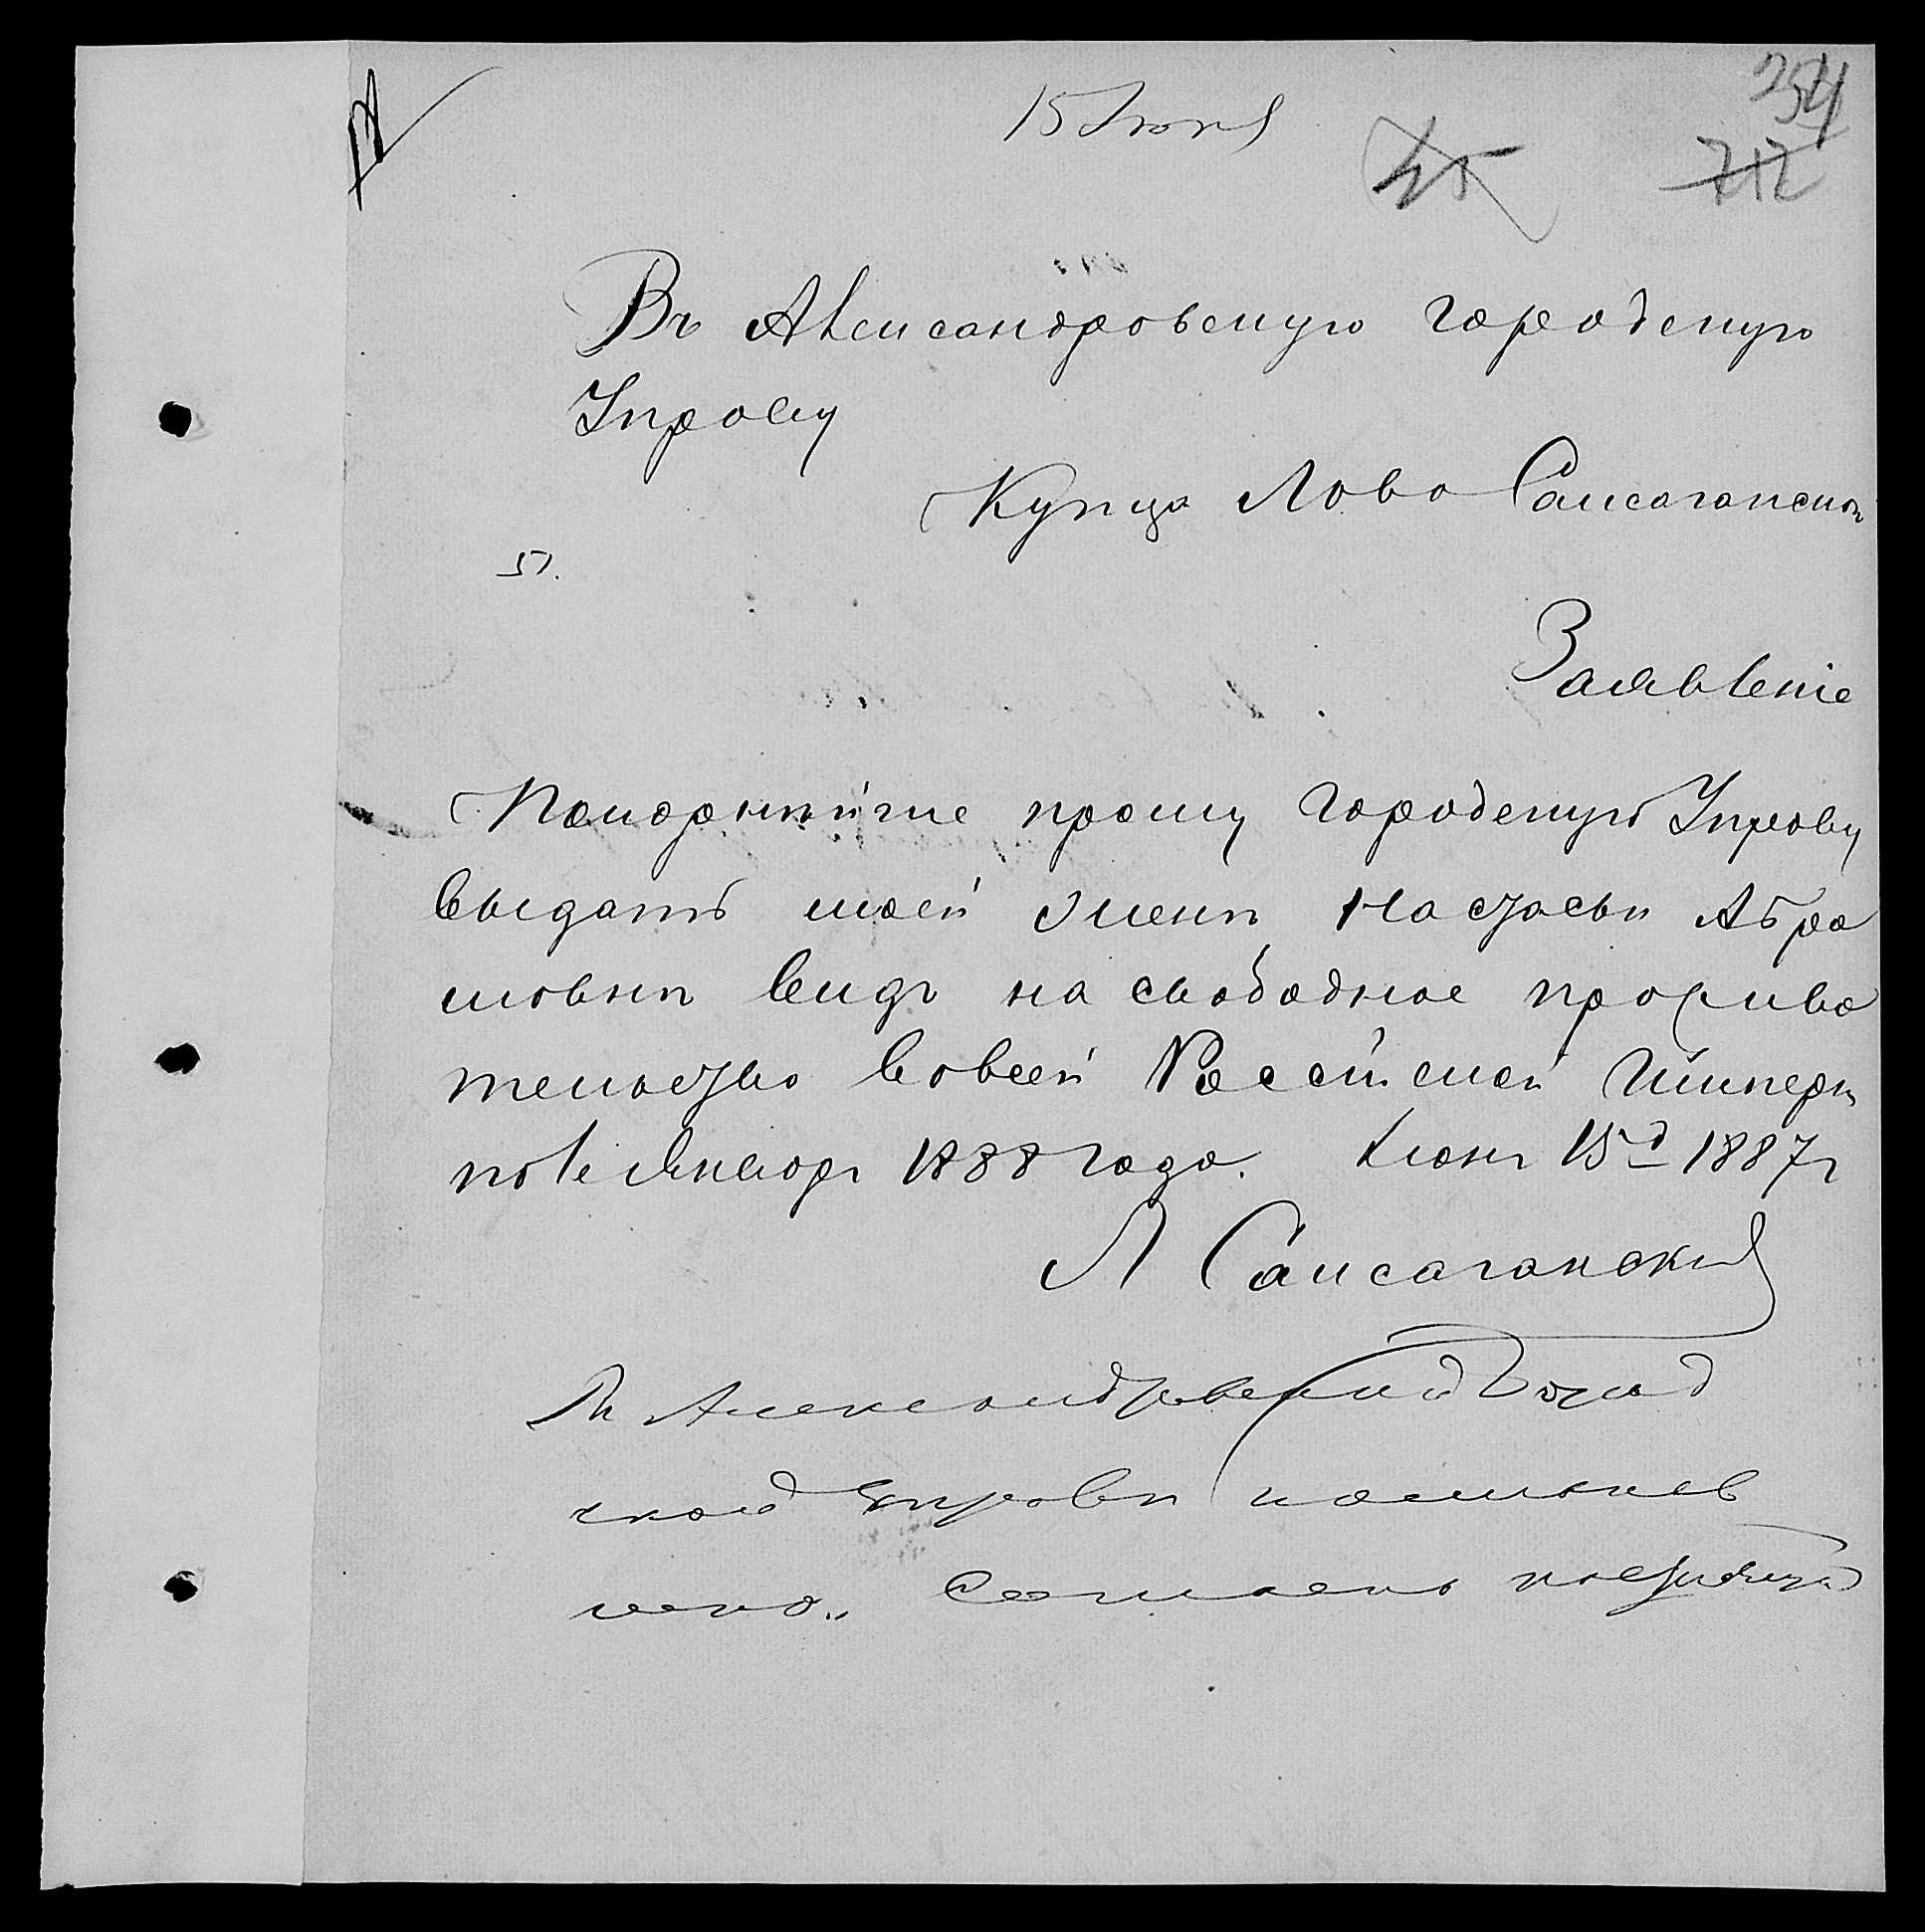 15 Июня
254
45
712
Въ Александровскую городскую
Управу
Купца Лова Саксаганского
51.
Заявленіе
Покорнѣйше прошу Городскую Управу
выдать моей жене Настасьи Абра
мовнѣ видъ на свободное прожива
тельство вовсей Россійской Имперіи
по 1е Январъ 1888 года. Июнъ 15д 1887г
Л Саксаганский
Въ Александровской Город
ской управѣ